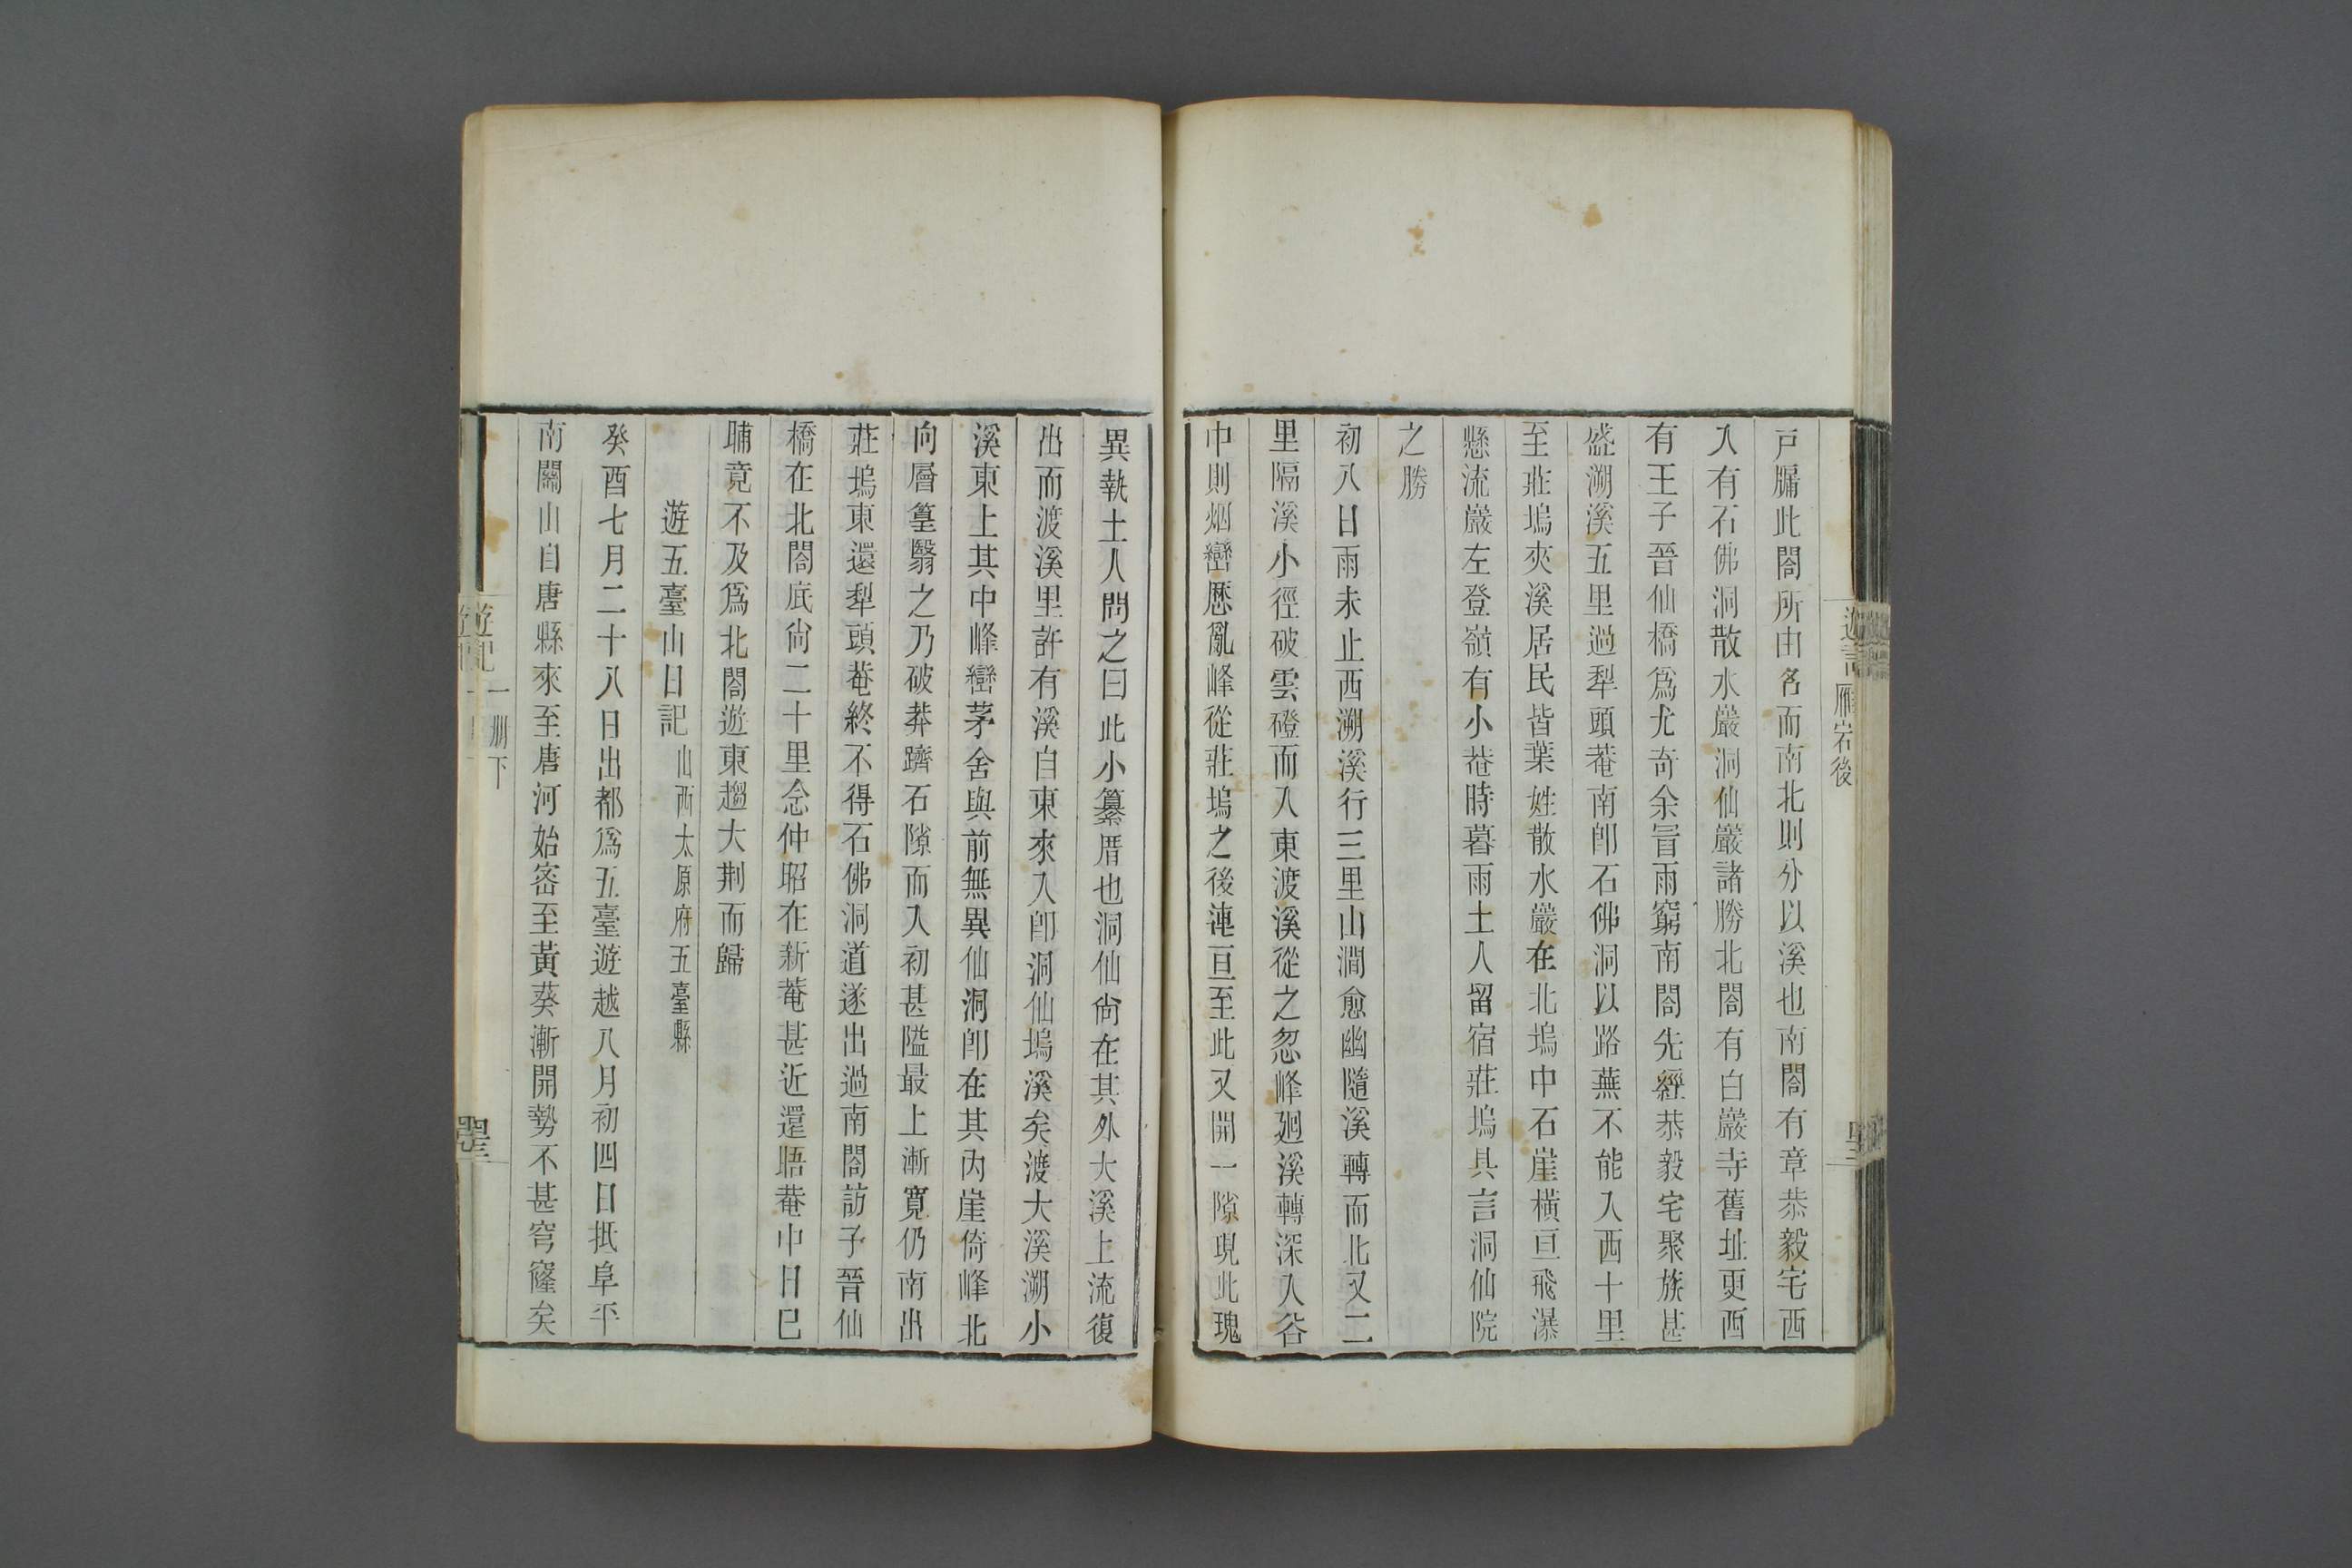 遊記
雁宕後
戸牖此閤所由名而南北則分以溪也南閤有章恭毅宅西
入有石佛洞散水巖洞仙巖諸勝北閤有白巖寺舊址更西
有王子晉仙橋爲尤奇余冒雨窮南閤先經恭毅宅聚族甚
盛溯溪五里過犁頭菴南卽石佛洞以路蕪不能入西十里
至莊塢夾溪居民皆葉姓散水巖在北塢中石崖橫亘飛瀑
懸流巖左登嶺有小菴時暮雨土人留宿莊塢具言洞仙院
之勝
初八日雨未止西溯溪行三里山澗愈幽隨溪轉而北又二
里隔溪小徑破雲磴而入東渡溪從之忽峰廻溪轉深入谷
中則烟巒歷亂峰從莊塢之後連亘至此又開一隙現此瑰
異執土人問之曰此小纂厝也洞仙尙在其外大溪上流復
出而渡溪里許有溪自東來入卽洞仙塢溪矣渡大溪溯小
溪東上其中峰巒茅舍與前無異仙洞卽在其內崖倚峰北
向層篁翳之乃破莽躋石隙而入初甚隘最上漸寬仍南出
莊塢東還犁頭菴終不得石佛洞道遂出過南閤訪子晉仙
橋在北閤底尙二十里念仲昭在新菴甚近還晤菴中日已
晡竟不及爲北閤遊東趨大荆而歸
遊五臺山日記 山西太原府五臺縣
癸酉七月二十八日出都爲五臺遊越八月初四日抵阜平
南關山自唐縣來至唐河始密至黃葵漸開勢不甚穹窿矣
遊記
一册下